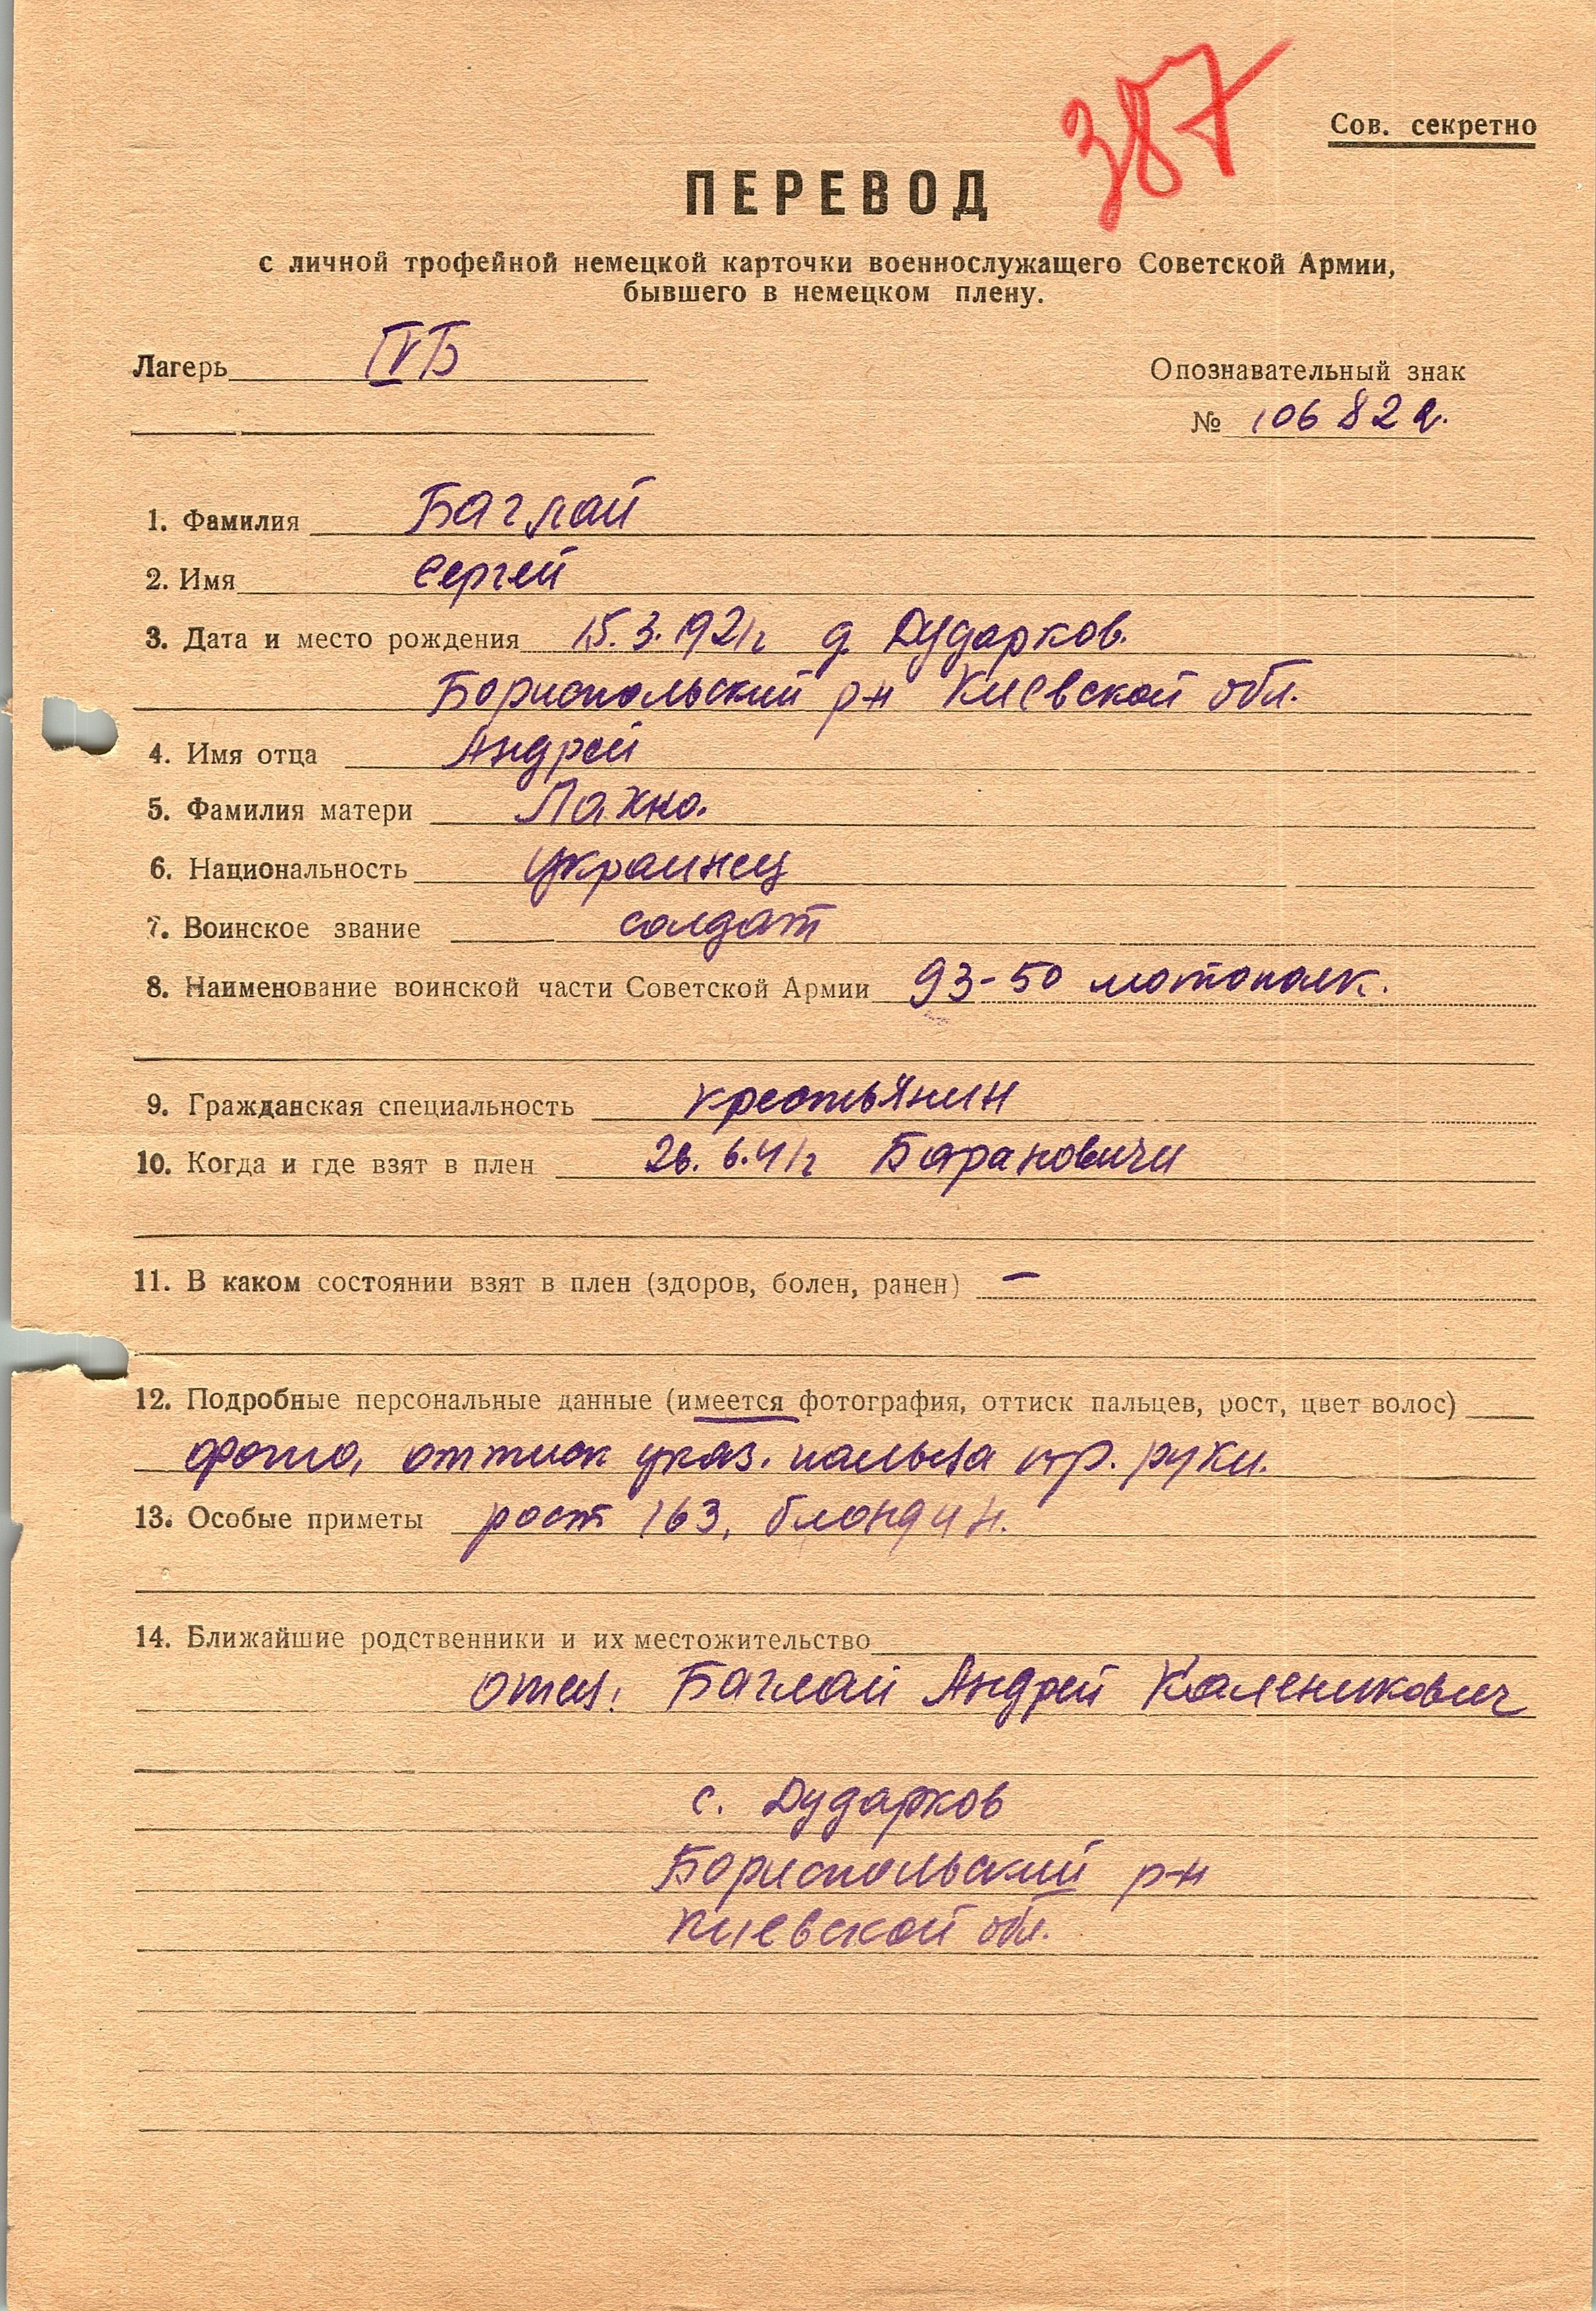 387
Сов. секретно
ПЕРЕВОД
с личной трофейной немецкой карточки военнослужащего Советской Армии,
бывшего в немецком плену.
Лагерь IVБ
Опознавательный знак
№ 106822.
1. Фамилия Баглай
2. Имя Сергей
3. Дата и место рождения 15.3.1921г д. Дударков.
Бориспольский р-н Киевской обл.
4. Имя отца Андрей
5. Фамилия матери Лахно.
6. Национальность украинец
7. Воинское звание солдат
8. Наименование воинской части Советской Армии 93-50 мотополк.
9. Гражданская специальность крестьянин
10. Когда и где взят в плен 26.6.41г Барановичи
11. В каком состоянии взят в плен (здоров, болен, ранен) –
12. Подробные персональные данные (имеется фотография, оттиск пальцев, рост, цвет волос)
фото, оттиск указ. пальца пр. руки.
13. Особые приметы рост 163, блондин.
14. Ближайшие родственники и их местожительство
отец: Баглай Андрей Каленикович
с. Дударков
Бориспольский р-н
Киевской обл.